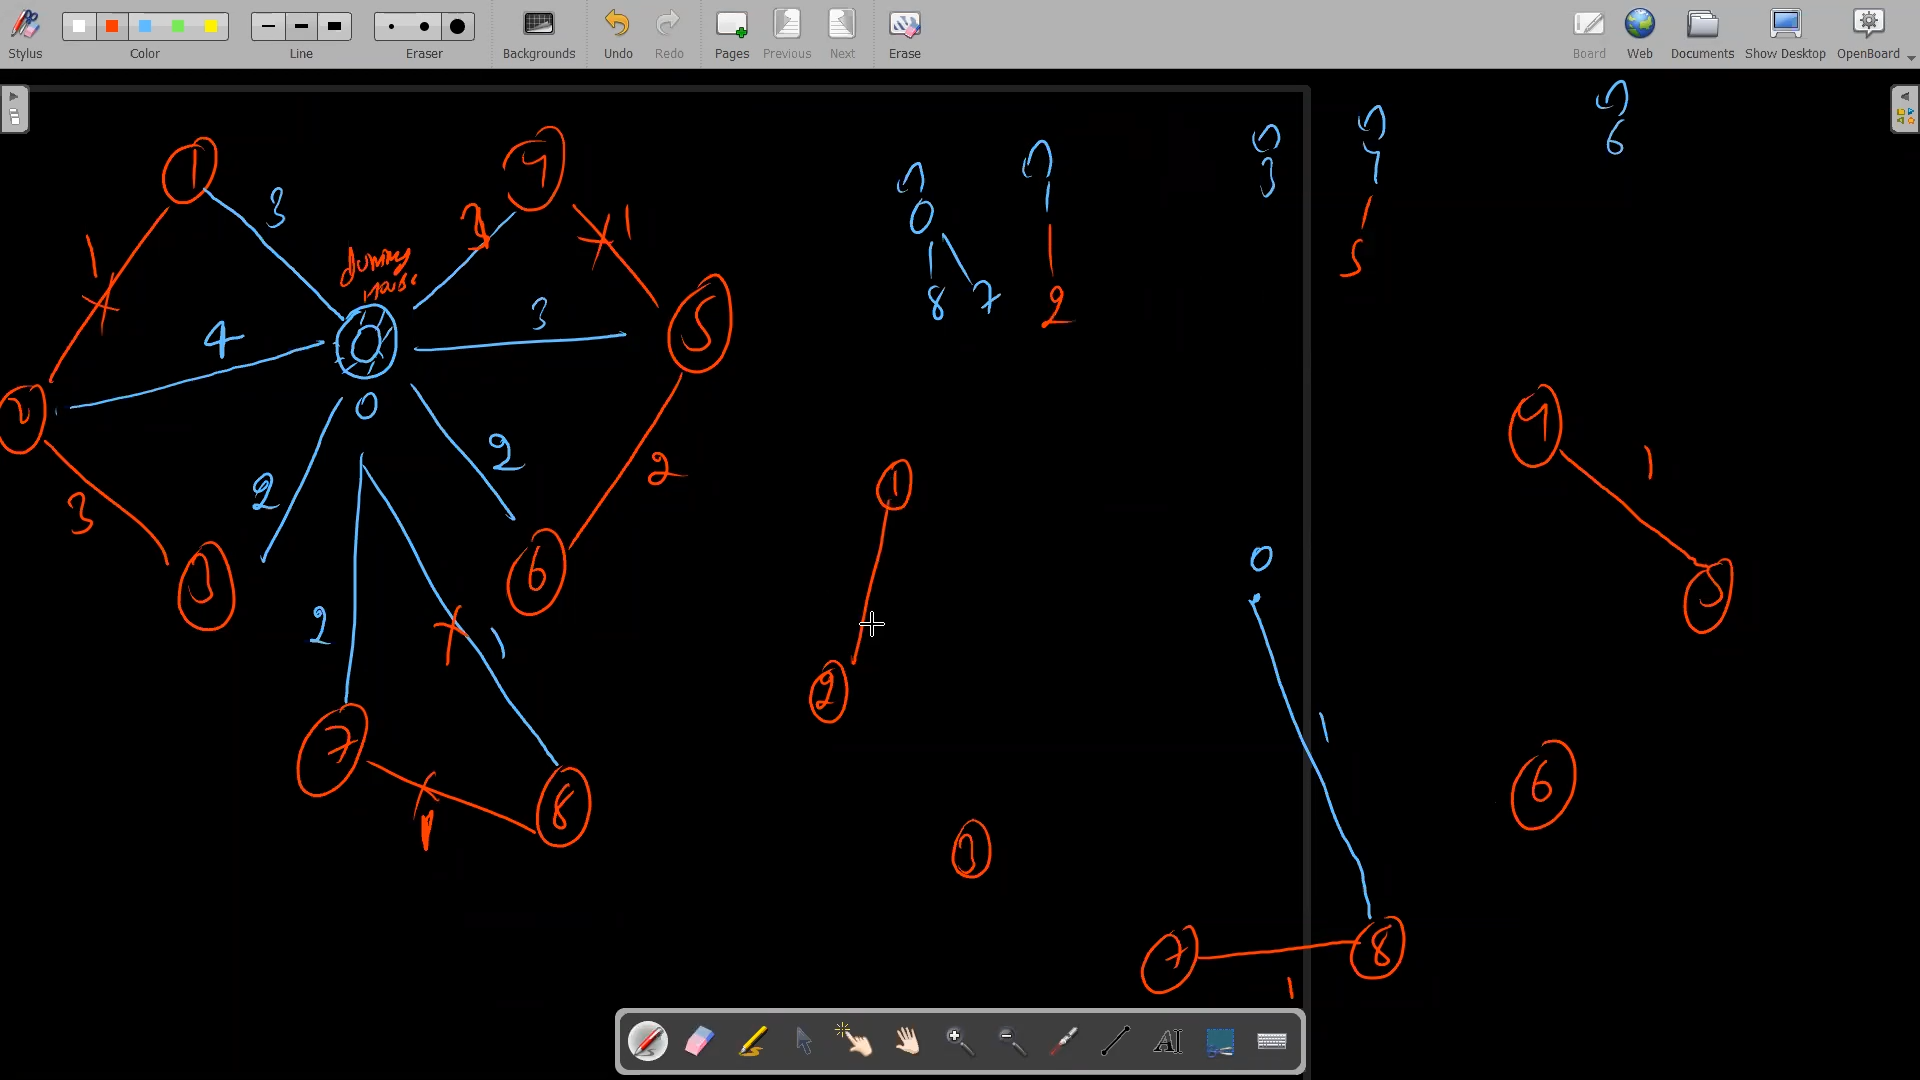 Stylus Color Line Eraser Backgrounds Undo Redo Pages Previous Next Erase Board Web Documents Show Desktop OpenBoard
1 3 4 1
1 dummy
4 0 3 5
2 0
3 2 2 2
3 6
2 1
7 1 8
0 1 3 4 6
8 7 2 5
1 2 3
0 1 7 1 8
4 1 5
6